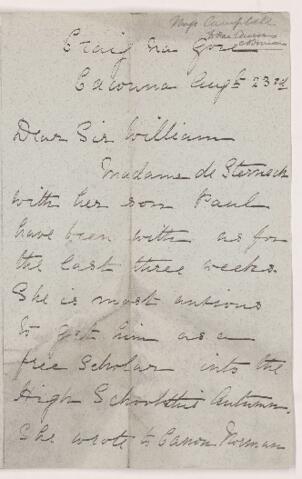 Mrs Campbell
Craig na Gour
Cacouna Augst 23rd
Dear Sir William
Madame de Sterneck
with her son Paul
have been with us for
the last three weeks
She is most anxious
to get him as a
free Scholar into the
High School this Autumn.
She wrote to Canon Norman